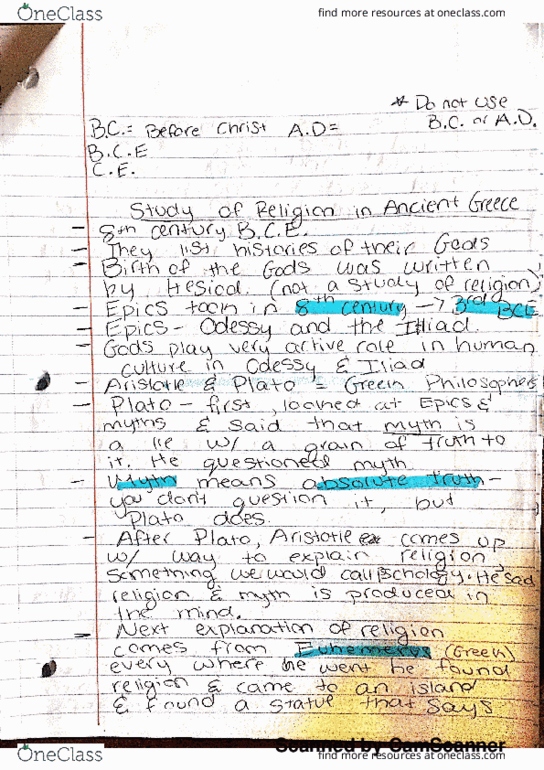 OneClass
find more resources at oneclass.com
* Do not use
B.C. or A.D.
B.C.= Before Christ A.D=
B.C.E
C.E.
Study of Religion in Ancient Greece
- 8th century B.C.E.
- They list histories of their Gods
- Birth of the Gods was written
by Hesicd. (not a study of religion)
- Epics took in 8th century → 3rd BCE
- Epics - Odessy and the Illiad.
- Gods play very active role in human
culture in Odessy & Iliad
- Aristotle & Plato = Greek Philosophers
- Plato - first, looked at Epics &
myths & said that myth is
a lie w/ a grain of truth to
it. He questioned myth
- Myth means absolute truth -
you don't question it, but
Plato does.
- After Plato, Aristotle comes up
w/ way to explain religion,
something we would call Pschology. He said
religion & myth is produced in
the mind.
- Next explanation of religion
comes from Euhemerus (Greek)
every where he went he found
religion & came to an island
& found a statue that says
Scanned by CamScanner
OneClass
find more resources at oneclass.com